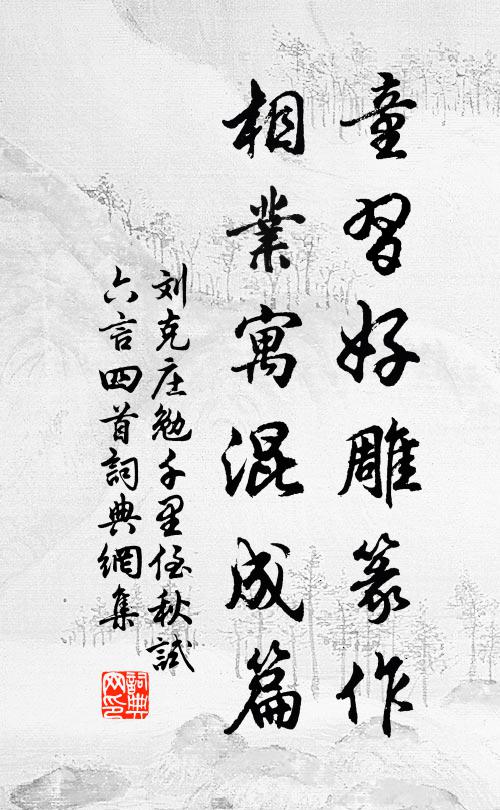 童習好雕篆作
相業寓混成篇
刘克庄勉千里侄秋試
六言四首詞典網集
詞典网印